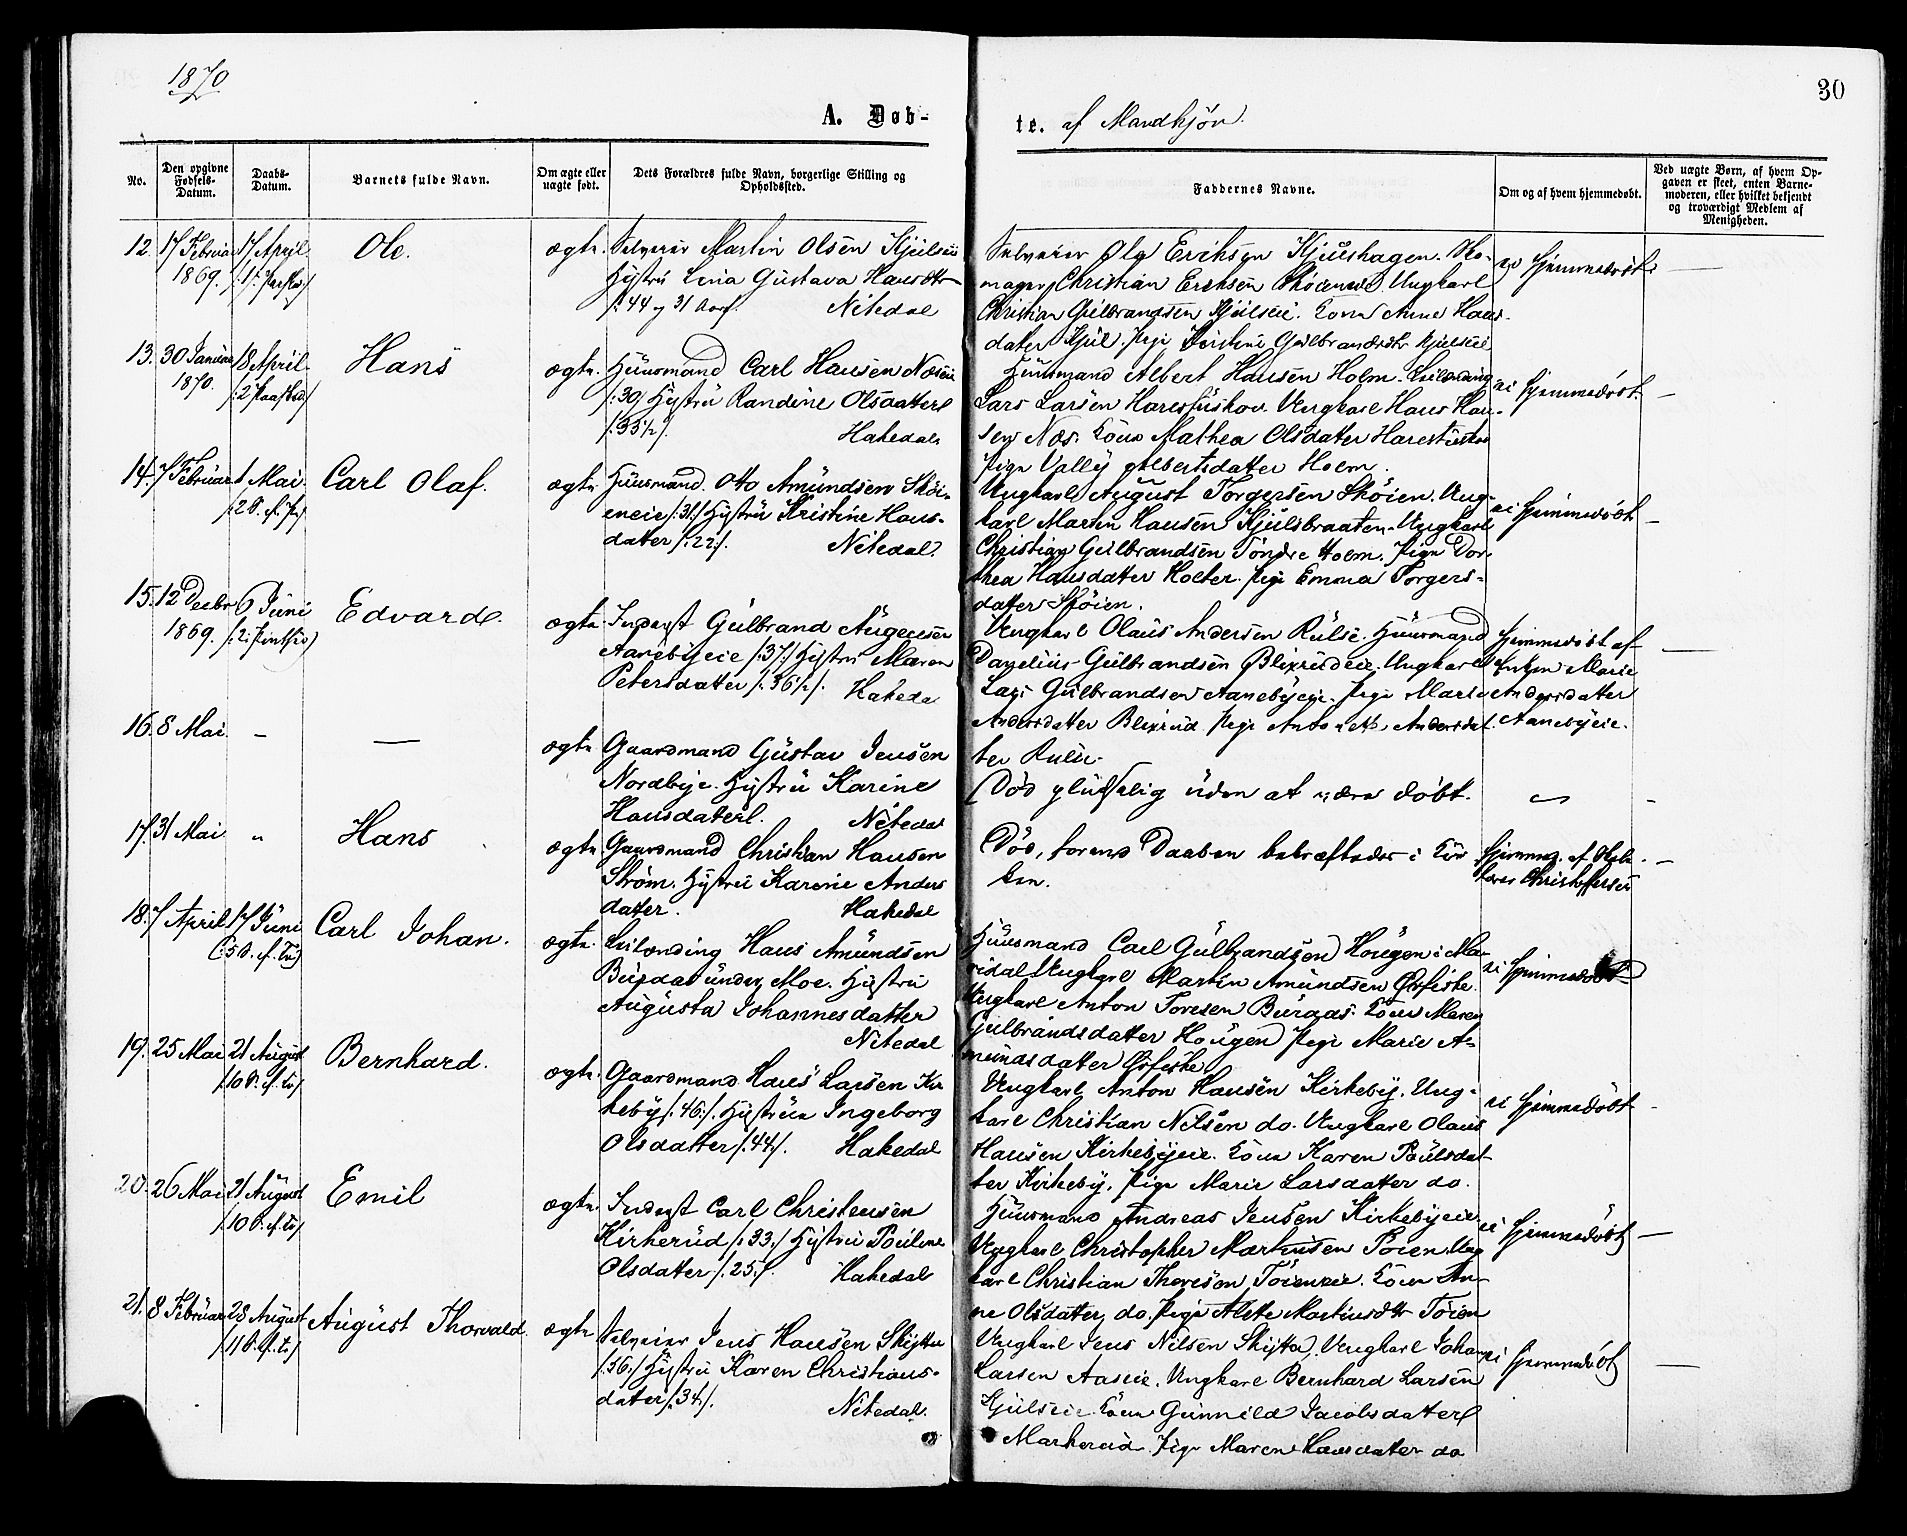 1870
30
A. Døb-
te. af Mandkjøn.
No.
Den opgivne Fødsels-Datum.
Daabs-Datum.
Barnets fulde Navn.
Om ægte eller uægte født.
Dets Forældres fulde Navn, borgerlige Stilling og Opholdssted.
Faddernes Navne.
Om og af hvem hjemmedøbt.
Ved uægte Børn, af hvem Opgaven er skeet, enten Barnemoderen, eller hvilket bekjendt og troværdigt Medlem af Menigheden.
12. 17 Februar 1869. 17 April
Ole.
ægte. Selveier Martin Olsen Kjulseie
Hystrü Lina Güstava Hansdtr
/:44 og 31 Nitedal
Selveier Ole Eriksen Kjulshagen. Sko-
mager Christian Eriksen Skøieneie. Ungkarl
Christian Gülbrandsen Kjülseie. Kone Anne Hans-
datter Kjül. Pige Kristine Gülbrandsdtr Kjülseie
ei hjemmedøbt
13. 30 Januar 1870. 18 April
Hans
ægte. Hüüsmand Carl Hansen Næseie
/:30/ Hystrü Randine Olsdatter
/:35½/. Hakedal
Hüüsmand Albert Hansen Holm. Leilænding
Lars Larsen Harestuskov. Ungkarl Hans Han-
sen Næs. Kone Mathea Olsdatter Harestuskov
Pige Vally Albertsdatter Holm.
ei hjemmedøbt
14. 7 Februar 1 Mai.
Carl Olaf.
ægte. Hüüsmand. Otto Amündsen Skøi-
eneie /:31:/ Hystrü Kristine Hans-
datter /:22:/. Nitedal.
Ungkarl August Torgersen Skøien. Ung-
karl Martin Hansen Kjülsbraaten. Ungkarl
Christian Gülbrandsen Søndre Holm. Pige Dor-
thea Hansdatter Holter. Pige Emma Torgers-
datter Skøien.
ei hjemmedøbt
15. 12 Decbr 1869. 6 Jüni
Edvard.
ægte. Inderst Gülbrand Aügensen
Aanebyeie /:37:/ Hystrü Maren
Petersdatter /:36½/. Hakedal
Ungkarl Olaüs Andersen Rülse. Hüüsmand
Danelius Gülbrandsen Blixrüdeie. Ungkarl
Lars Gülbrandsen Aanebyeie. Pige Marie
Andersdatter Blixrüd. Pige Antonette Andersdat-
ter Rulse.
Hjemmedøbt af
Enken Marie
Andersdatter
Aanebyeie.
16. 8 Mai. -
ægte Gaardmand Güstav Jensen
Nordbye. Hystrü Karine
Hansdatter. Nitedal
Død pludselig üden at være døbt.
17. 31 Mai "
Hans
ægte. Gaardmand Christian Hansen
Strøm. Hystrü Karine Anders
datter. Hakedal
Død, førend Daaben bekræftedes i Kir-
ken.
Hjemmed. af
Christoffersen
18. 7 April 17 Jüni
Carl Johan.
ægte. Leilænding Hans Amündsen
Bürdal ünder Moe. Hystrü
Augüsta Johannesdatter
Nitedal
Hüüsmand Carl Gülbrandsen Haügen i Ma-
ridal Ungkarl Martin Amündsen Ørfiske.
Ungkarl Anton Toresen Büraas. Kone Maren
Gülbrandsdatter Haügen Pige Marie A-
mündsdatter Ørfiske
ei hjemmedøbt
19. 25 Mai 21 Aügüst
Bernhard.
ægte. Gaardmand Hans Larsen Kir
keby /:46:/. Hystrüe Ingeborg
Olsdatter /:44/. Hakedal
Ungkarl Anton Hansen Kirkeby. Ung-
karl Christian Nilsen do. Ungkarl Olaus
Hansen Kirkebyeie. Kone Karen Poülsdat-
ter Kirkeby. Pige Marie Larsdatter do.
ei hjemmedøbt
20. 26 Mai 21 Aügüst
Emil
ægte. Inderst Carl Christensen
Kirkerüd /:33:/ Hystrü Poüline
Olsdatter /:25:/ Hakedal
Hüüsmand Andreas Jensen Kirkebyeie.
Ungkarl Christopher Martinsen Tøien. Ung
karl Christian Thoresen Tøieneie. Kone An-
ne Olsdatter do. Pige Alette Martinsdtr Tøien
ei hjemmedøbt
21. 8 Februar 28 Aügüst
Aügüst Thorvald.
ægte Selveier Jens Hansen Skytta
/:36:/ Hystrü Karen Christians-
datter /:34:/. Nitedal.
Ungkarl Jens Nilsen Skytta. Ungkarl Johan
Larsen Aaseie. Ungkarl Bernhard Larsen
Kjülseie. Kone Günnild Jacobsdatter
Markerüd. Pige Maren Hansdatter do
ei hjemmedøbt